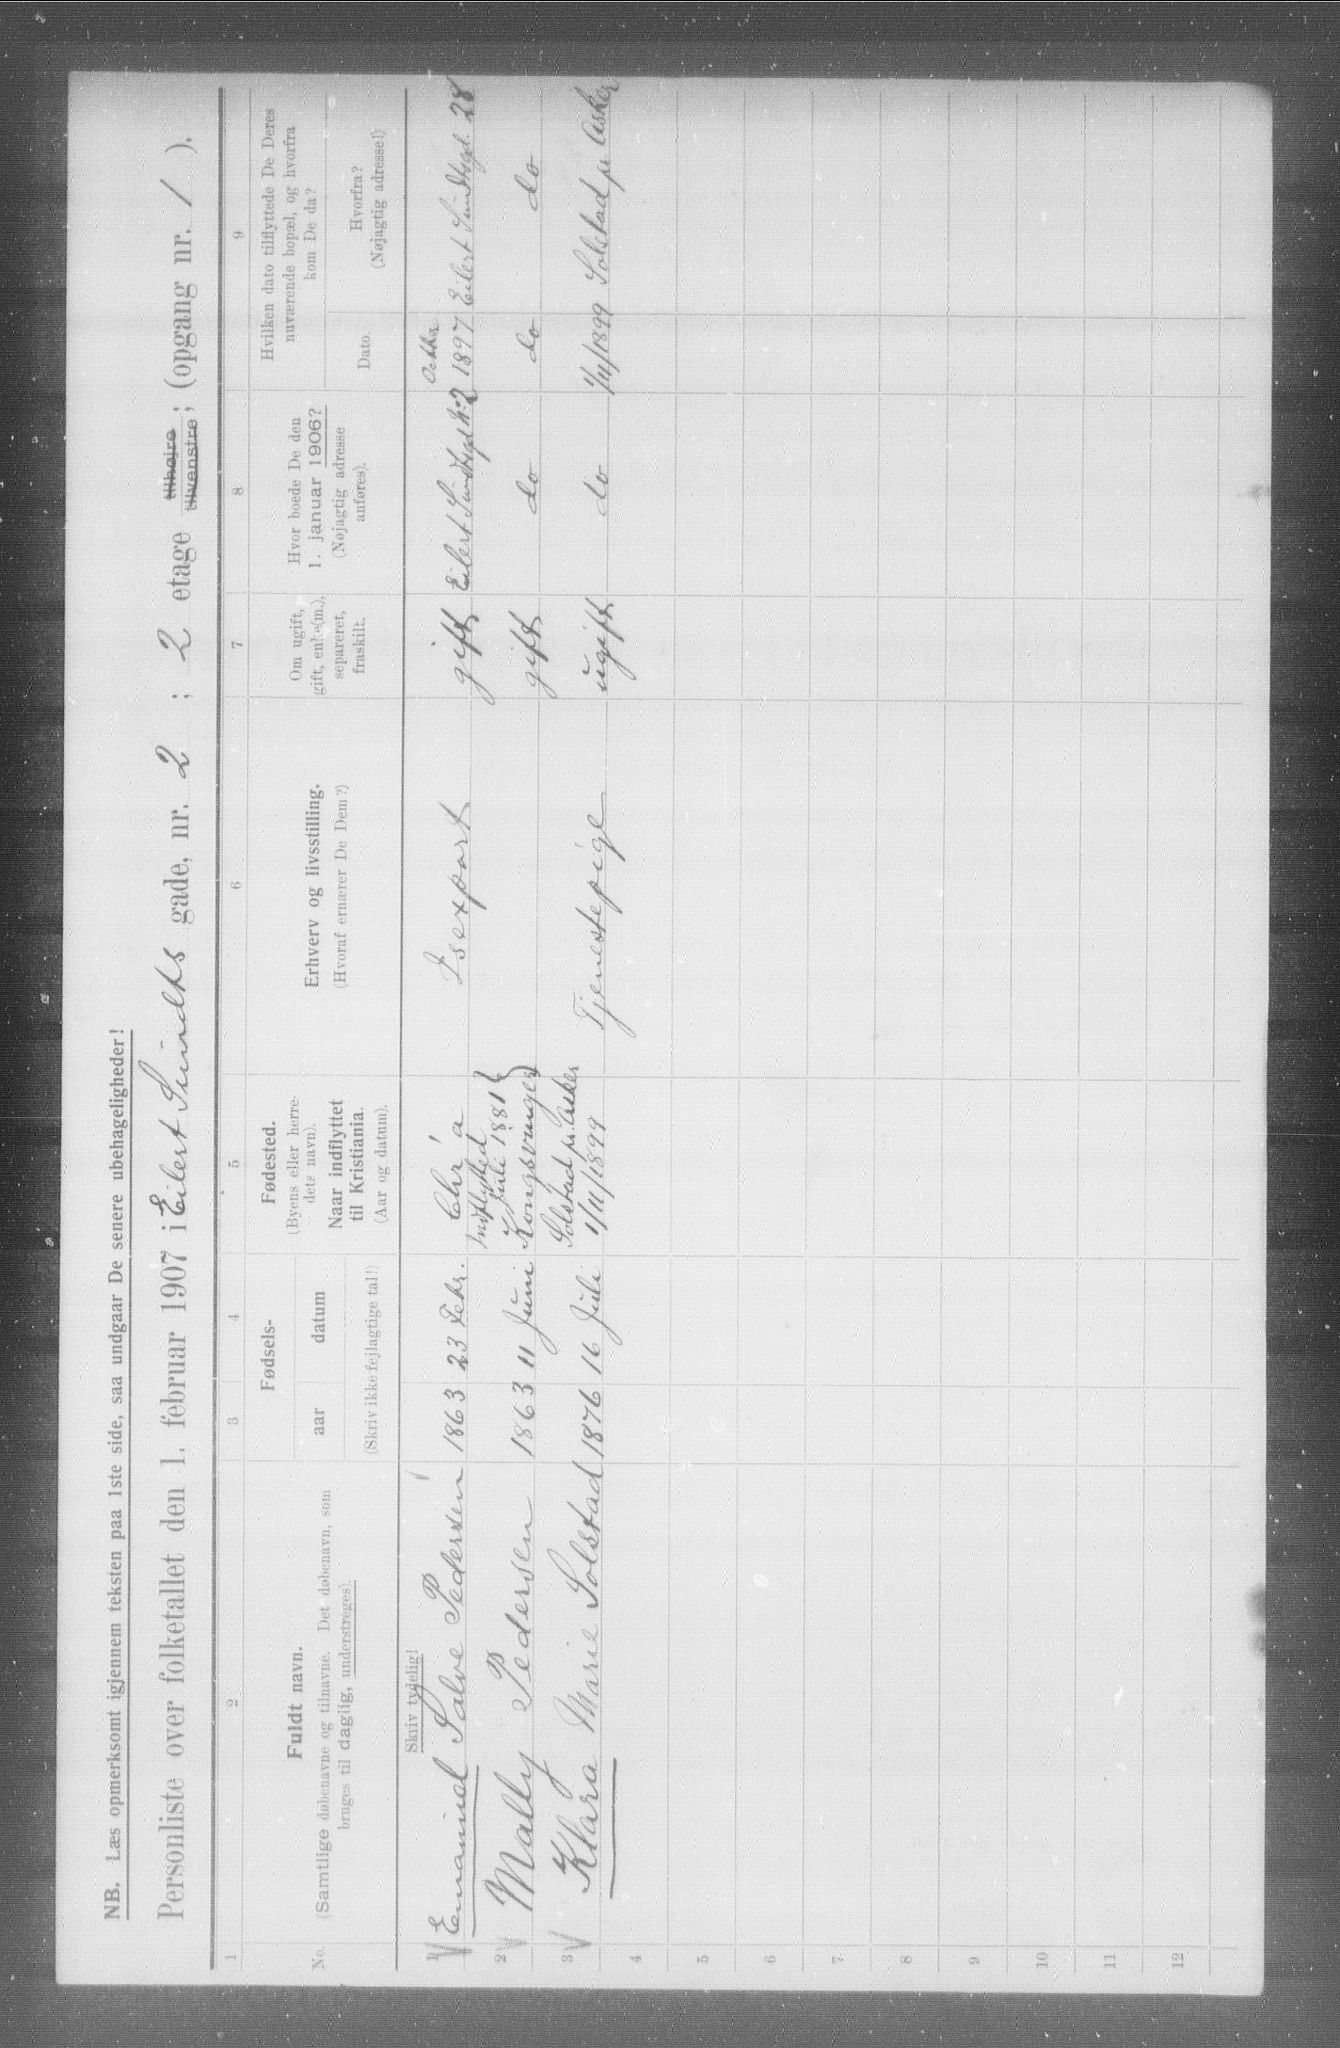 NB. Læs opmerksomt igjennem teksten paa 1ste side, saa undgaar De senere ubehageligheder!
Personliste over folketallet den 1. februar 1907 i Eilert Sundts gade, nr. 2 ; 2 etage tilhøjre tilvenstre; (opgang nr. / ).
1 2 3 4 5 6 7 8 9
No.
Fuldt navn.
(Samtlige døbenavne og tilnavne. Det døbenavn, som
bruges til daglig, understreges).
Fødsels-
aar datum
(Skriv ikke fejlagtige tal!)
Fødested.
(Byens eller herre-
dets navn).
Naar indflyttet
til Kristiania.
(Aar og datum).
Erhverv og livsstilling.
(Hvoraf ernærer De Dem?)
Om ugift,
gift, enke(m.),
separeret,
fraskilt.
Hvor boede De den
1. januar 1906?
(Nøjagtig adresse
anføres).
Hvilken dato tilflyttede De Deres
nuværende bopæl, og hvorfra
kom De da?
Dato.
Hvorfra?
(Nøjagtig adresse!)
Skriv tydelig!
1 Emanuel Salve Pedersen 1863 23 Febr. Chr a Isexport gift Eilert Sundtsgd No 2 Octbr 1897 Eilert Sundtsgd. 28
2 Mally Pedersen 1863 11 Juni Indflytted Juli 1881 Kongsvinger gift do do do
3 Klara Marie Solstad 1876 16 Juli Solstad pr. Asker 1/11/1899 Tjenestepige ugift do 1/11/1899 Solstad pr Asker
4
5
6
7
8
9
10
11
12